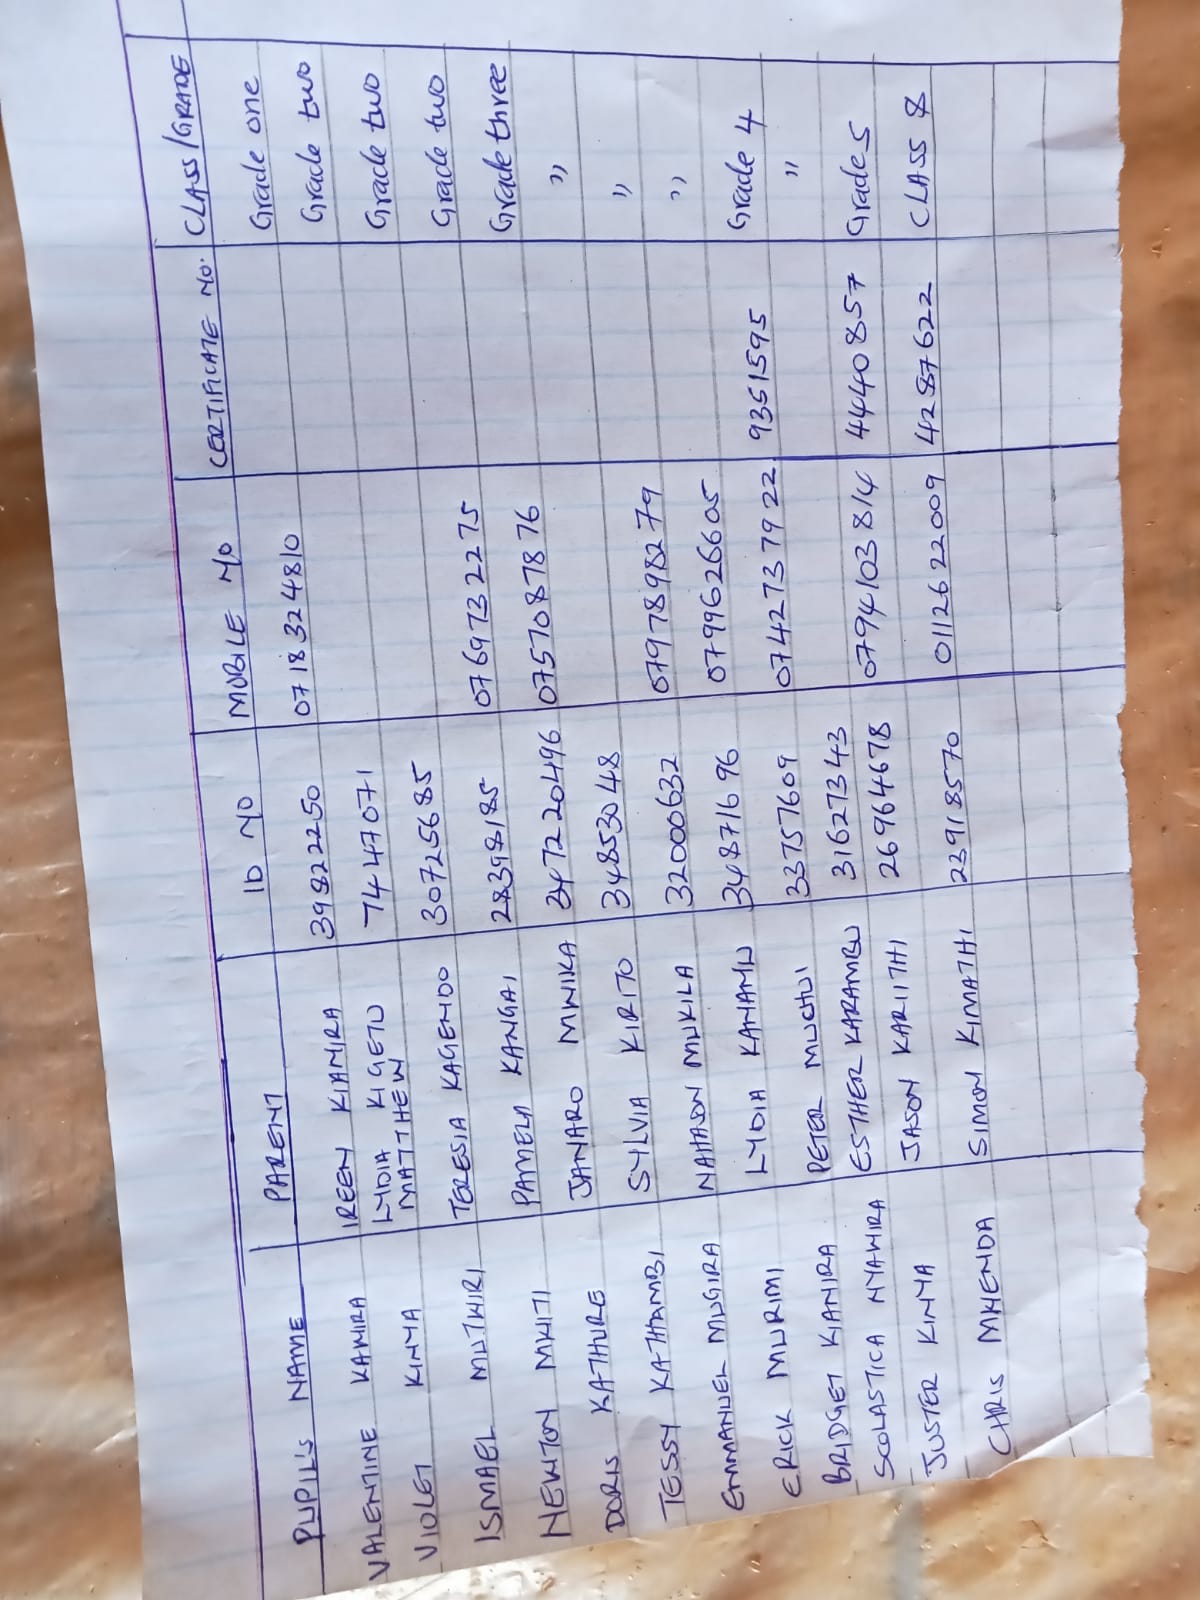 PUPIL'S NAME PARENT ID NO MOBILE NO CERTIFICATE NO. CLASS/GRADE
VALENTINE KAWIRA IREEN KIAMIRA 39822250 0718324810 Grade one
VIOLET KINYA LYDIA KIGETU MATTHEW 7447071 Grade two
ISMAEL MUTHIRI TERESIA KAGENDO 30725685 Grade two
NEWTON MWITI PAMELA KANGAI 28398185 0769732275 Grade two
DORIS KATHURE JANARO MWIKA 347220496 0757087876 Grade three
TESSY KATHAMBI SYLVIA KIRITO 34853048 ,,
EMMANUEL MUGIRA NAHASON MUKILA 32000632 0797898279 ,,
ERICK MURIMI LYDIA KANAMU 34871696 0799626605 ,,
BRIDGET KIANIRA PETER MUCHUI 33757609 0742737922 9351595 Grade 4
SCOLASTICA NYAWIRA ESTHER KARAMBU 31627343 ,,
JUSTER KINYA JASON KARIITHI 26964678 0794103814 4440857 Grade 5
CHRIS MWENDA SIMON KIMATHI 23918570 0112622009 4287622 CLASS 8